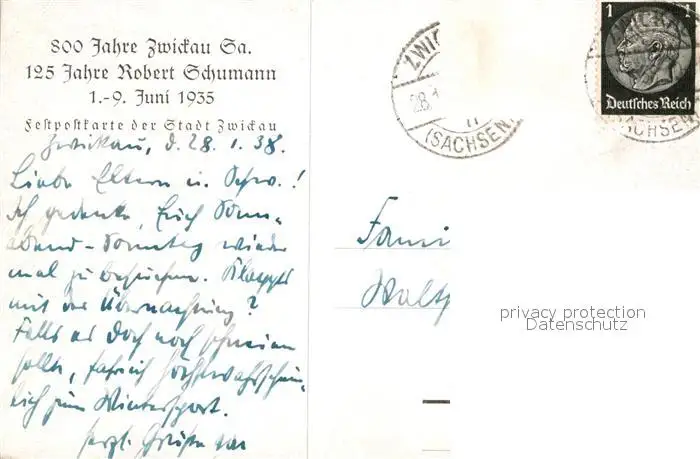 800 Jahre Zwickau Sa.
125 Jahre Robert Schumann
1.-9. Juni 1935
Festpostkarte der Stadt Zwickau
Zwickau, d. 28.1.38.
Liebe Eltern u. Schw.!
Ich gedenke, Euch Sonn-
abend-Sonntag wieder
mal zu besuchen. Klappts
mit der Übernachtung?
Falls es doch noch schneien
sollte, fahr ich höchstwahrschein-
lich zum Wintersport.
Herzl. Grüße
ZWIC
28.1
(SACHSEN)
1
Deutsches Reich
(SACHSEN)
Fami
privacy protection
Datenschutz